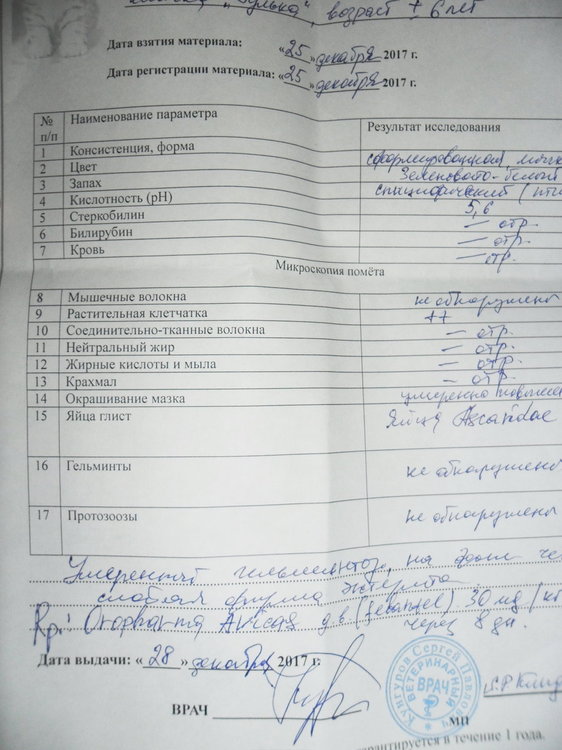 возраст ± 6 лет
Дата взятия материала: «25» декабря 2017 г.
Дата регистрации материала: «25» декабря 2017 г.
№ п/п Наименование параметра Результат исследования
1 Консистенция, форма
2 Цвет Зеленовато-белый
3 Запах специфический
4 Кислотность (pH) 5,6
5 Стеркобилин — отр.
6 Билирубин — отр.
7 Кровь — отр.
Микроскопия помёта
8 Мышечные волокна не обнаружены
9 Растительная клетчатка ++
10 Соединительно-тканные волокна — отр.
11 Нейтральный жир — отр.
12 Жирные кислоты и мыла — отр.
13 Крахмал — отр.
14 Окрашивание мазка умеренно
15 Яйца глист яйца
16 Гельминты не обнаружены
17 Протозоозы не обнаружены
Умеренный на фоне
слабая
Rp: 30 mg/кг
через 8 дн.
Дата выдачи: «28» декабря 2017 г.
ВРАЧ МП
Кунгуров Сергей ВЕТЕРИНАРНЫЙ ВРАЧ
рантируется в течение 1 года.